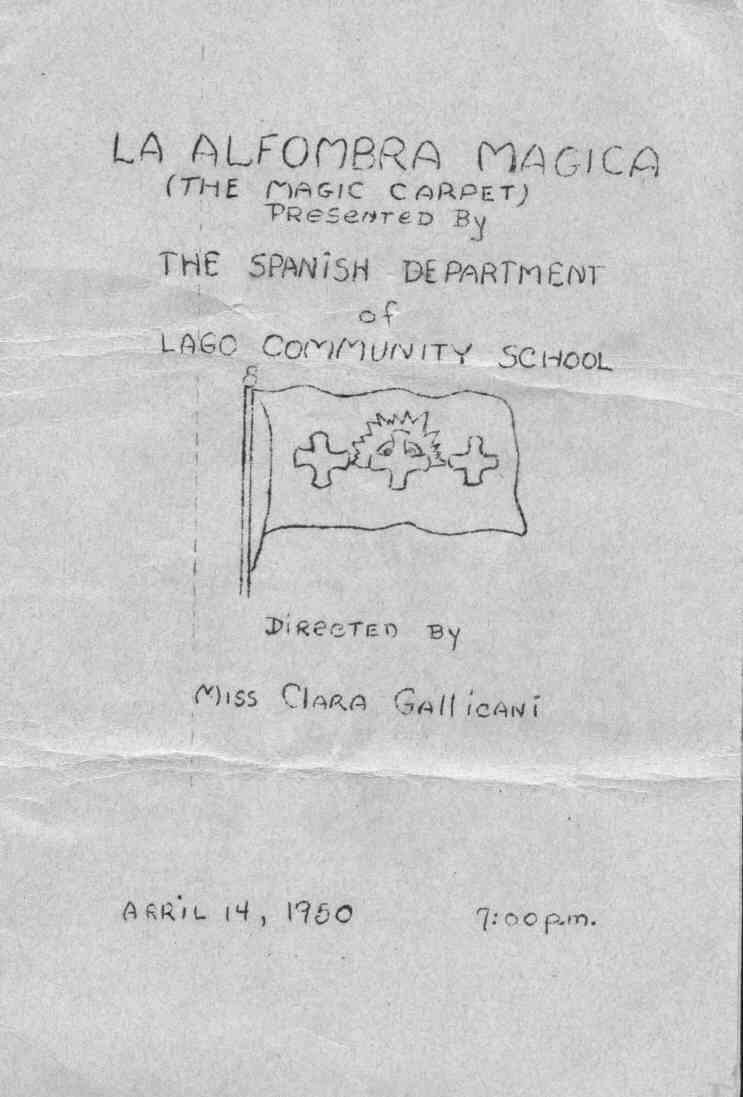 LA ALFOMBRA MAGICA
(THE MAGIC CARPET)
PReSeNTeD By
THE SPANiSH DEPARTMENT
of
LAGO COMMUNITY SCHOOL
DiReCTED By
Miss ClARA GAllicANi
APRiL 14, 1950 7:00 p.m.